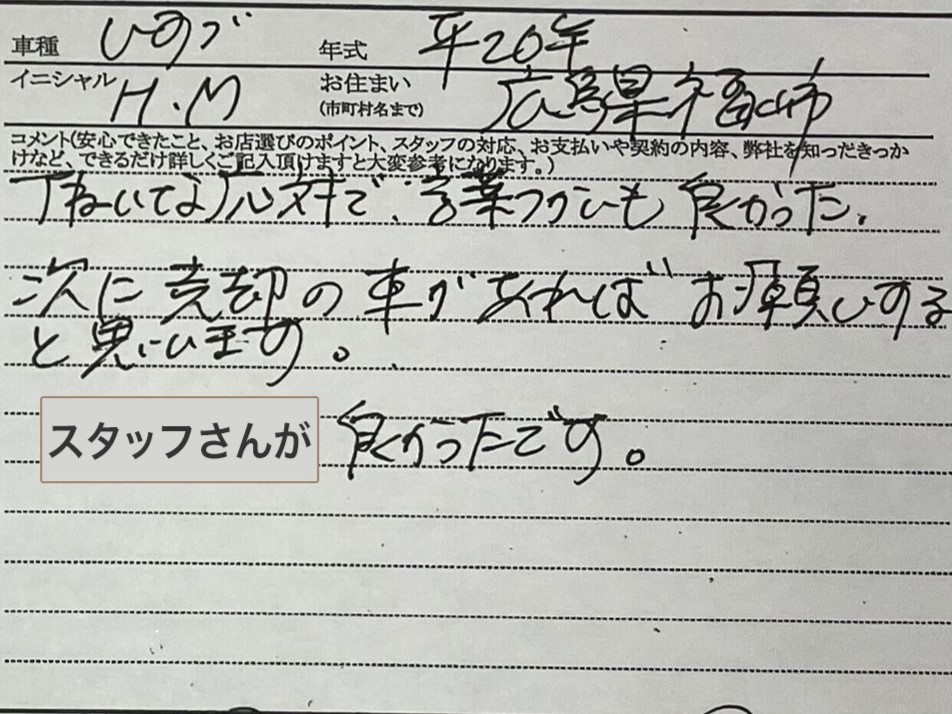 車種 ひのブ 年式 平20年
イニシャル H.M お住まい(市町村名まで) 広島県福山市
コメント(安心できたこと、お店選びのポイント、スタッフの対応、お支払いや契約の内容、弊社を知っだきっか
けなど、できるだけ詳しくご記入頂けますと大変参考になります。)
丁ねいな応対で、言葉づかいも良かった。
次に売却の車があればお願いする
と思います。
スタッフさんが良かったです。